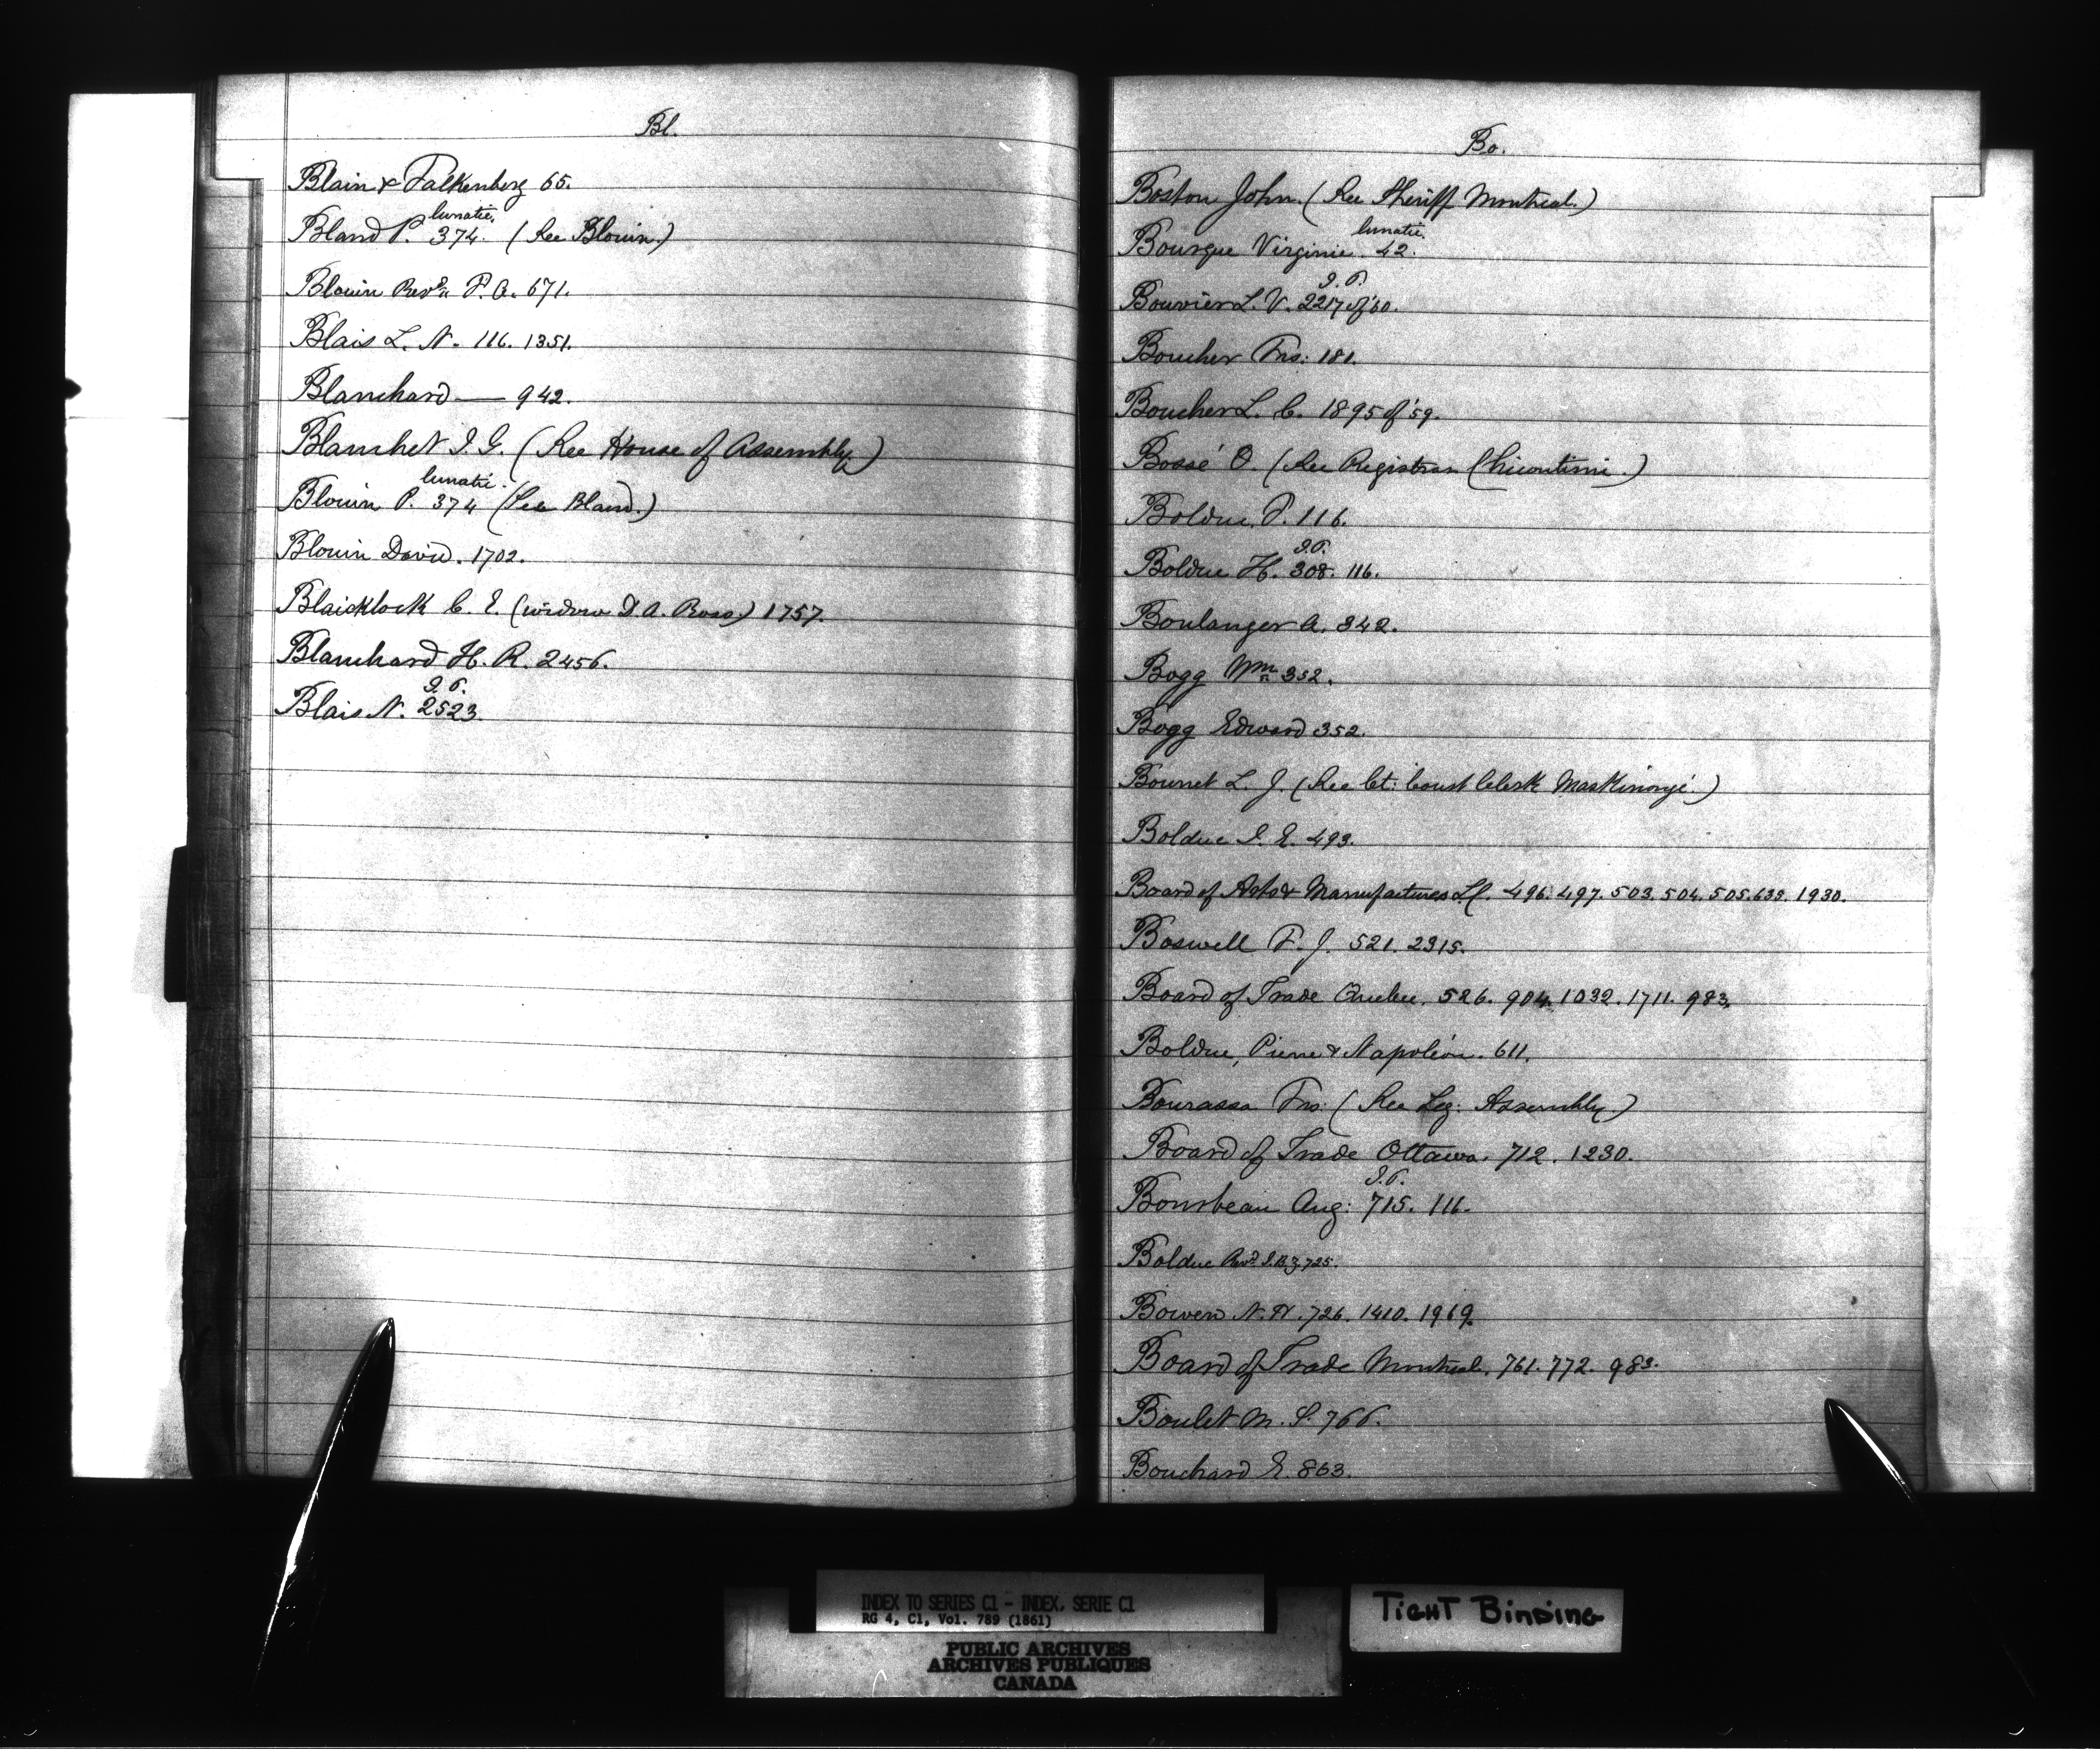 Bl.
Blain & Falkenberg 65.
lunatic.
Bland P. 374. (See Blouin.)
Blouin Revd. P. A. 671.
Blais L. N. 116. 1351.
Blanchard — 942.
Blanchet J. G. (See House of Assembly)
lunatic.
Blouin P. 374 (See Bland.)
Blouin David. 1702.
Blaicklock C. E. (widow D. A. Ross) 1757.
Blanchard H. R. 2456.
J. P.
Blais N. 2523.
Bo.
Boston John. (See Sheriff Montreal.)
lunatic.
Bourque Virginie. 42.
J. P.
Bouvier L. V. 2217 of '60.
Boucher Frs: 181.
Boucher L. C. 1895 of '59.
Bossé O. (See Registrar Chicoutimi.)
Bolduc P. 116.
J. P.
Bolduc H. 308. 116.
Boulanger A. 342.
Bogg Wm. 352.
Bogg Edward 352.
Bournet L. J. (See Ct: Court Clerk Maskinongé.)
Bolduc J. E. 493.
Board of Arts & Manufactures L C. 496. 497. 503. 504. 505. 633. 1930.
Boswell F. J. 521. 2315.
Board of Trade Quebec. 526. 904. 1032. 1711. 983.
Bolduc, Pierre & Napoléon. 611.
Bourassa Frs: (See Leg: Assembly)
Board of Trade Ottawa. 712. 1230.
J. P.
Bourbeau Aug: 715. 116.
Bolduc Revd. J. B. Z. 725.
Bowen N. H. 726. 1410. 1969.
Board of Trade Montreal. 761. 772. 983.
Boulet M. S. 766.
Bouchard E. 863.
INDEX TO SERIES C1 - INDEX, SERIE C1
RG 4, C1, Vol. 789 (1861)
PUBLIC ARCHIVES
ARCHIVES PUBLIQUES
CANADA
TIGHT BINDING